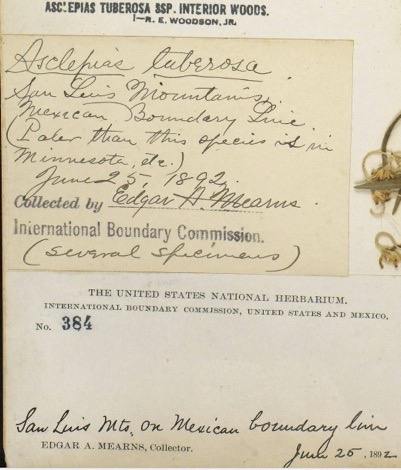 ASCLEPIAS TUBEROSA SSP. INTERIOR WOODS.
I—R. E. WOODSON, JR.
Asclepias tuberosa.
San Luis Mountains,
Mexican Boundary Line.
(Paler than this species is in
Minnesota, etc.)
June 25, 1892.
Collected by Edgar A. Mearns.
International Boundary Commission.
(several specimens)
THE UNITED STATES NATIONAL HERBARIUM.
INTERNATIONAL BOUNDARY COMMISSION, UNITED STATES AND MEXICO,
No. 384
San Luis Mts, on Mexican boundary line
EDGAR A. MEARNS, Collector.
June 25, 1892